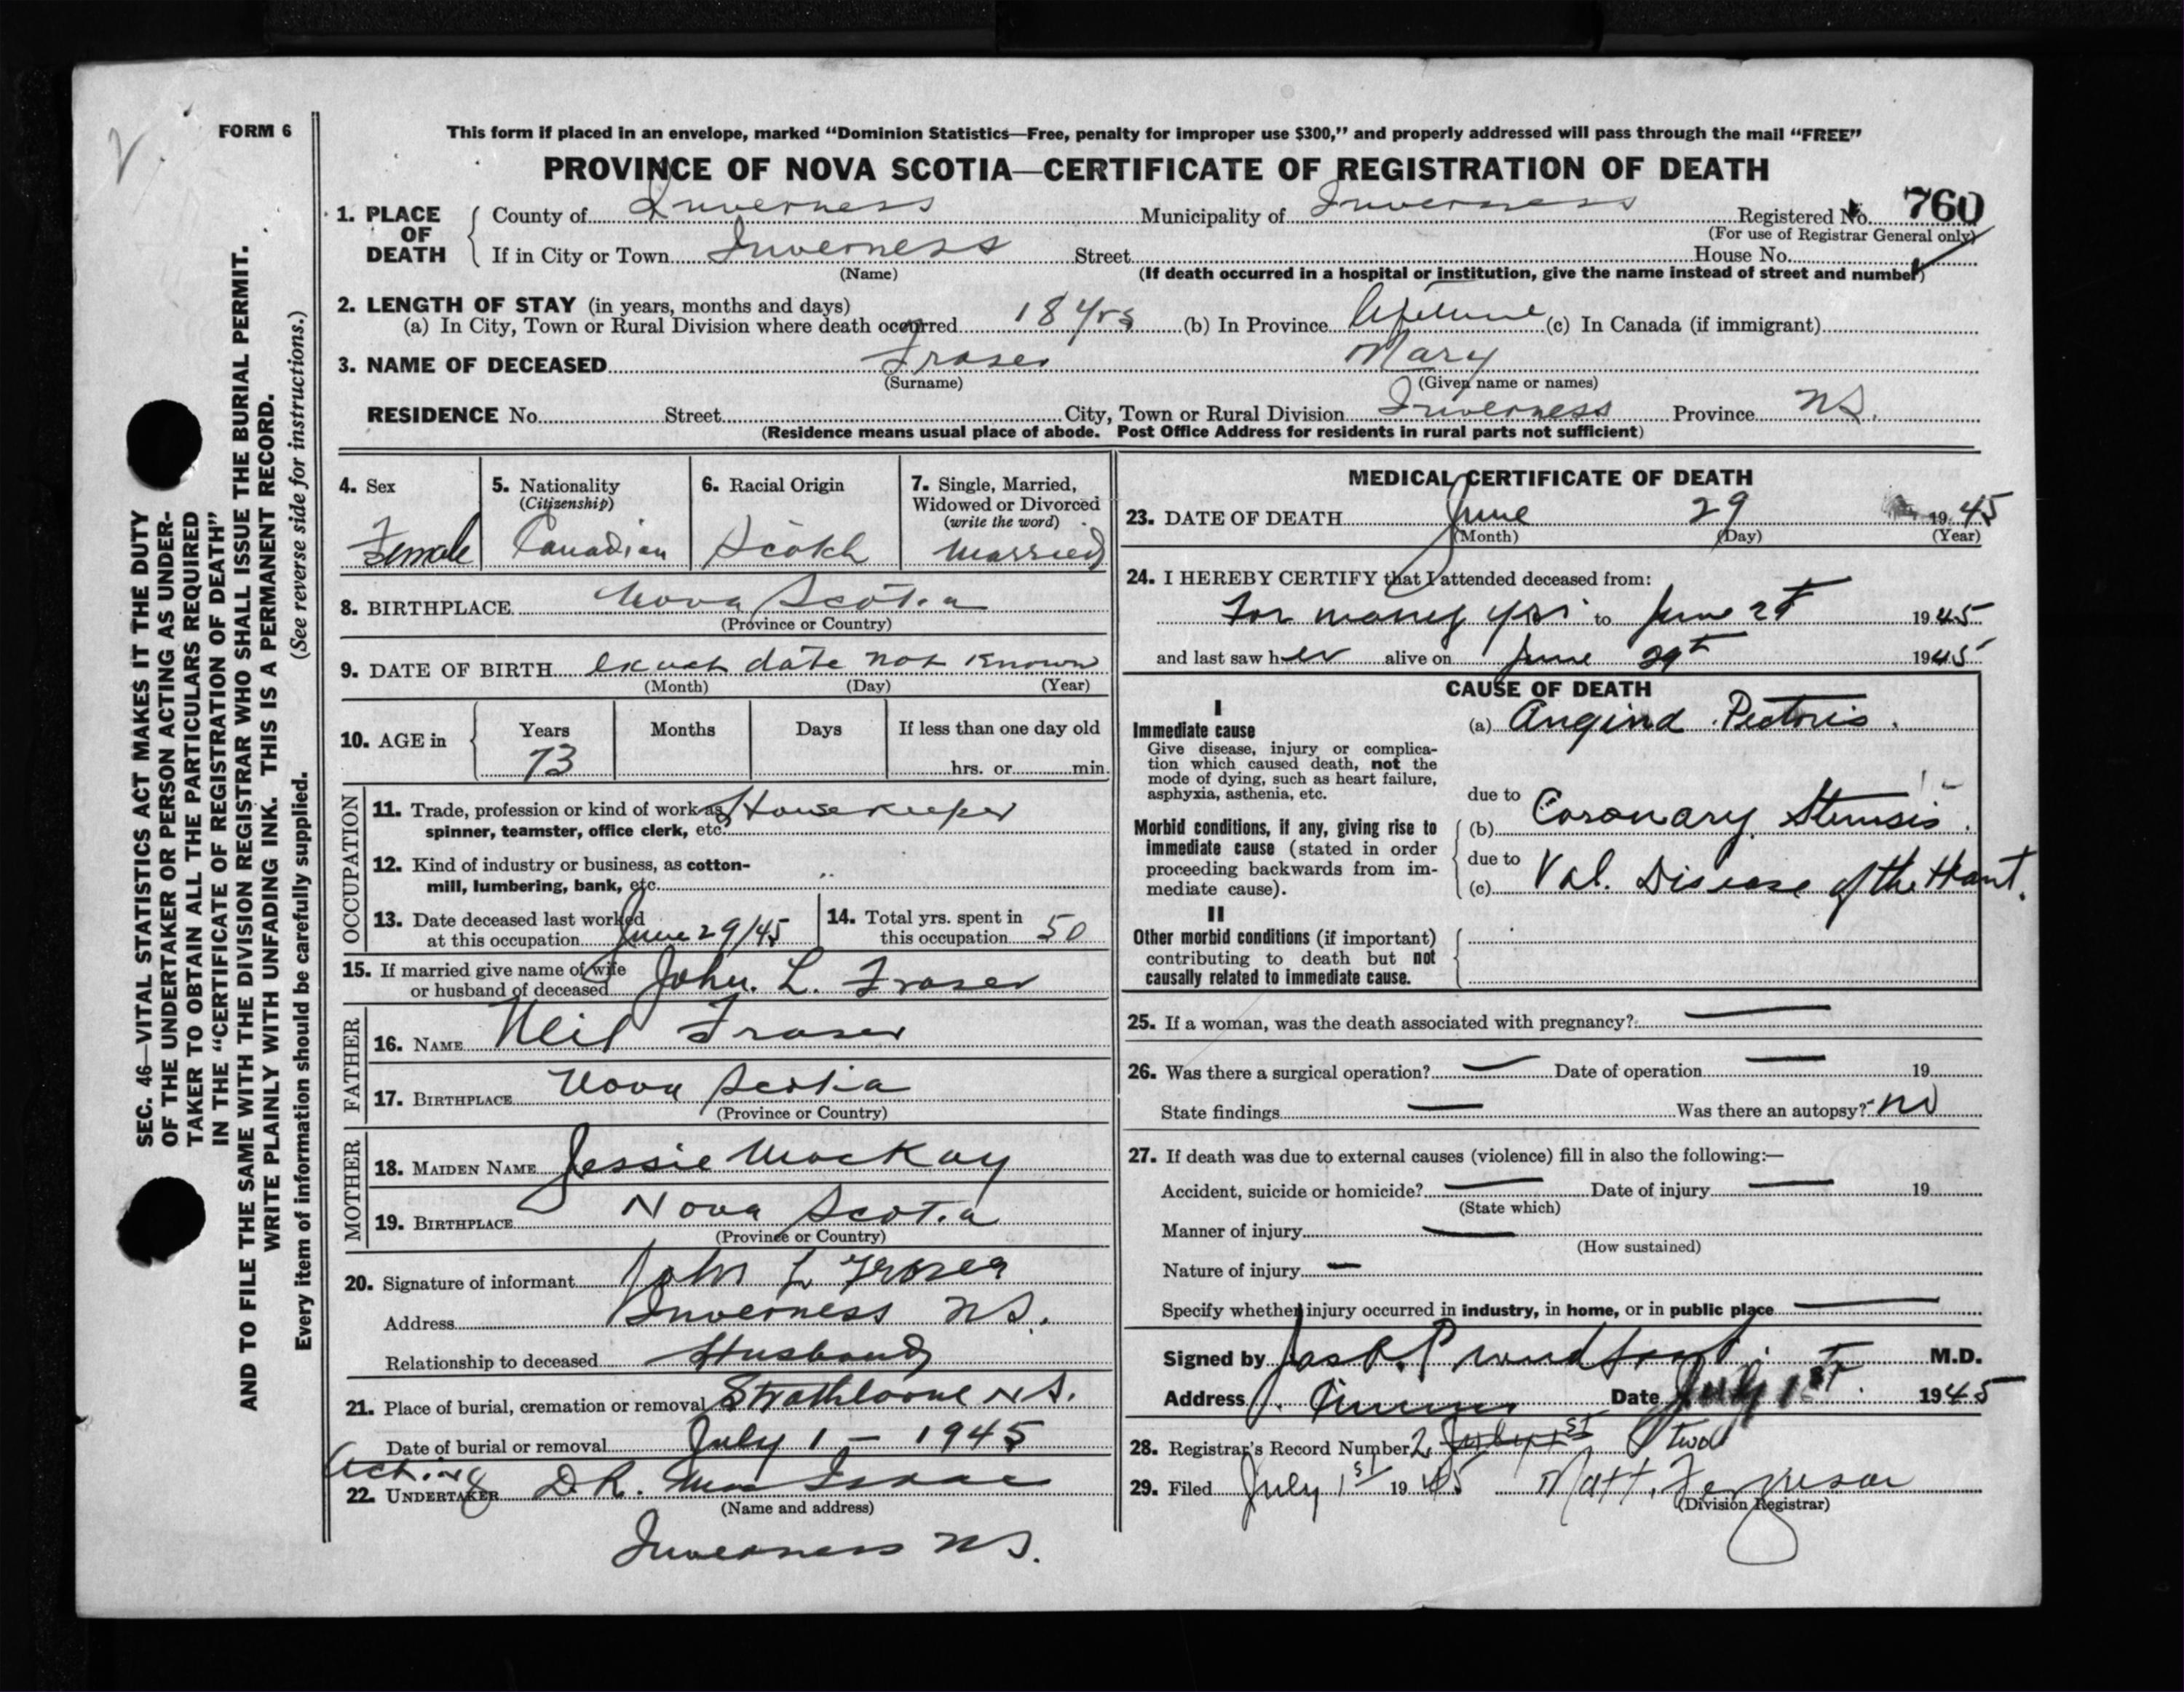 FORM 6
This form if placed in an envelope, marked “Dominion Statistics—Free, penalty for improper use $300,” and properly addressed will pass through the mail “FREE”
PROVINCE OF NOVA SCOTIA—CERTIFICATE OF REGISTRATION OF DEATH
1. PLACE OF DEATH
County of Inverness Municipality of Inverness Registered No. 760
(For use of Registrar General only)
If in City or Town Inverness Street House No.
(Name) (If death occurred in a hospital or institution, give the name instead of street and number)
2. LENGTH OF STAY (in years, months and days)
(a) In City, Town or Rural Division where death occurred 18 yrs (b) In Province lifetime (c) In Canada (if immigrant)
3. NAME OF DECEASED Fraser Mary
(Surname) (Given name or names)
RESIDENCE No. Street City, Town or Rural Division Inverness Province N.S.
(Residence means usual place of abode. Post Office Address for residents in rural parts not sufficient)
4. Sex
Female
5. Nationality
(Citizenship)
Canadian
6. Racial Origin
Scotch
7. Single, Married,
Widowed or Divorced
(write the word)
Married
8. BIRTHPLACE Nova Scotia
(Province or Country)
9. DATE OF BIRTH exact date not known
(Month) (Day) (Year)
10. AGE in
Years Months Days If less than one day old
73 hrs. or min.
OCCUPATION
11. Trade, profession or kind of work as Housekeeper
spinner, teamster, office clerk, etc.
12. Kind of industry or business, as cotton-
mill, lumbering, bank, etc.
13. Date deceased last worked
at this occupation June 29/45
14. Total yrs. spent in
this occupation 50
15. If married give name of wife
or husband of deceased John. L. Fraser
FATHER
16. NAME Neil Fraser
17. BIRTHPLACE Nova Scotia
(Province or Country)
MOTHER
18. MAIDEN NAME Jessie MacKay
19. BIRTHPLACE Nova Scotia
(Province or Country)
20. Signature of informant John L Fraser
Address Inverness N.S.
Relationship to deceased Husband
21. Place of burial, cremation or removal Strathlorne N.S.
Date of burial or removal July 1 - 1945
Acting
22. UNDERTAKER D.R. MacIsaac
(Name and address)
Inverness N.S.
MEDICAL CERTIFICATE OF DEATH
23. DATE OF DEATH June 29 1945
(Month) (Day) (Year)
24. I HEREBY CERTIFY that I attended deceased from:
For many yrs to June 1945
and last saw her alive on June 29th 1945
CAUSE OF DEATH
I
Immediate cause
Give disease, injury or complica-
tion which caused death, not the
mode of dying, such as heart failure,
asphyxia, asthenia, etc.
(a) Angina Pectoris.
due to
Morbid conditions, if any, giving rise to
immediate cause (stated in order
proceeding backwards from im-
mediate cause).
(b) Coronary
due to
(c) Val. Disease of the Heart.
II
Other morbid conditions (if important)
contributing to death but not
causally related to immediate cause.
25. If a woman, was the death associated with pregnancy? —
26. Was there a surgical operation? — Date of operation — 19
State findings — Was there an autopsy? no
27. If death was due to external causes (violence) fill in also the following:—
Accident, suicide or homicide? — Date of injury — 19
(State which)
Manner of injury —
(How sustained)
Nature of injury —
Specify whether injury occurred in industry, in home, or in public place —
Signed by Jas. R. Proudfoot. M.D.
Address Date July 1st 1945
28. Registrar's Record Number 2 July 1st two
29. Filed July 1st 1945 Matt. Ferguson
(Division Registrar)
SEC. 46—VITAL STATISTICS ACT MAKES IT THE DUTY
OF THE UNDERTAKER OR PERSON ACTING AS UNDER-
TAKER TO OBTAIN ALL THE PARTICULARS REQUIRED
IN THE “CERTIFICATE OF REGISTRATION OF DEATH”
AND TO FILE THE SAME WITH THE DIVISION REGISTRAR WHO SHALL ISSUE THE BURIAL PERMIT.
WRITE PLAINLY WITH UNFADING INK. THIS IS A PERMANENT RECORD.
Every item of information should be carefully supplied. (See reverse side for instructions.)